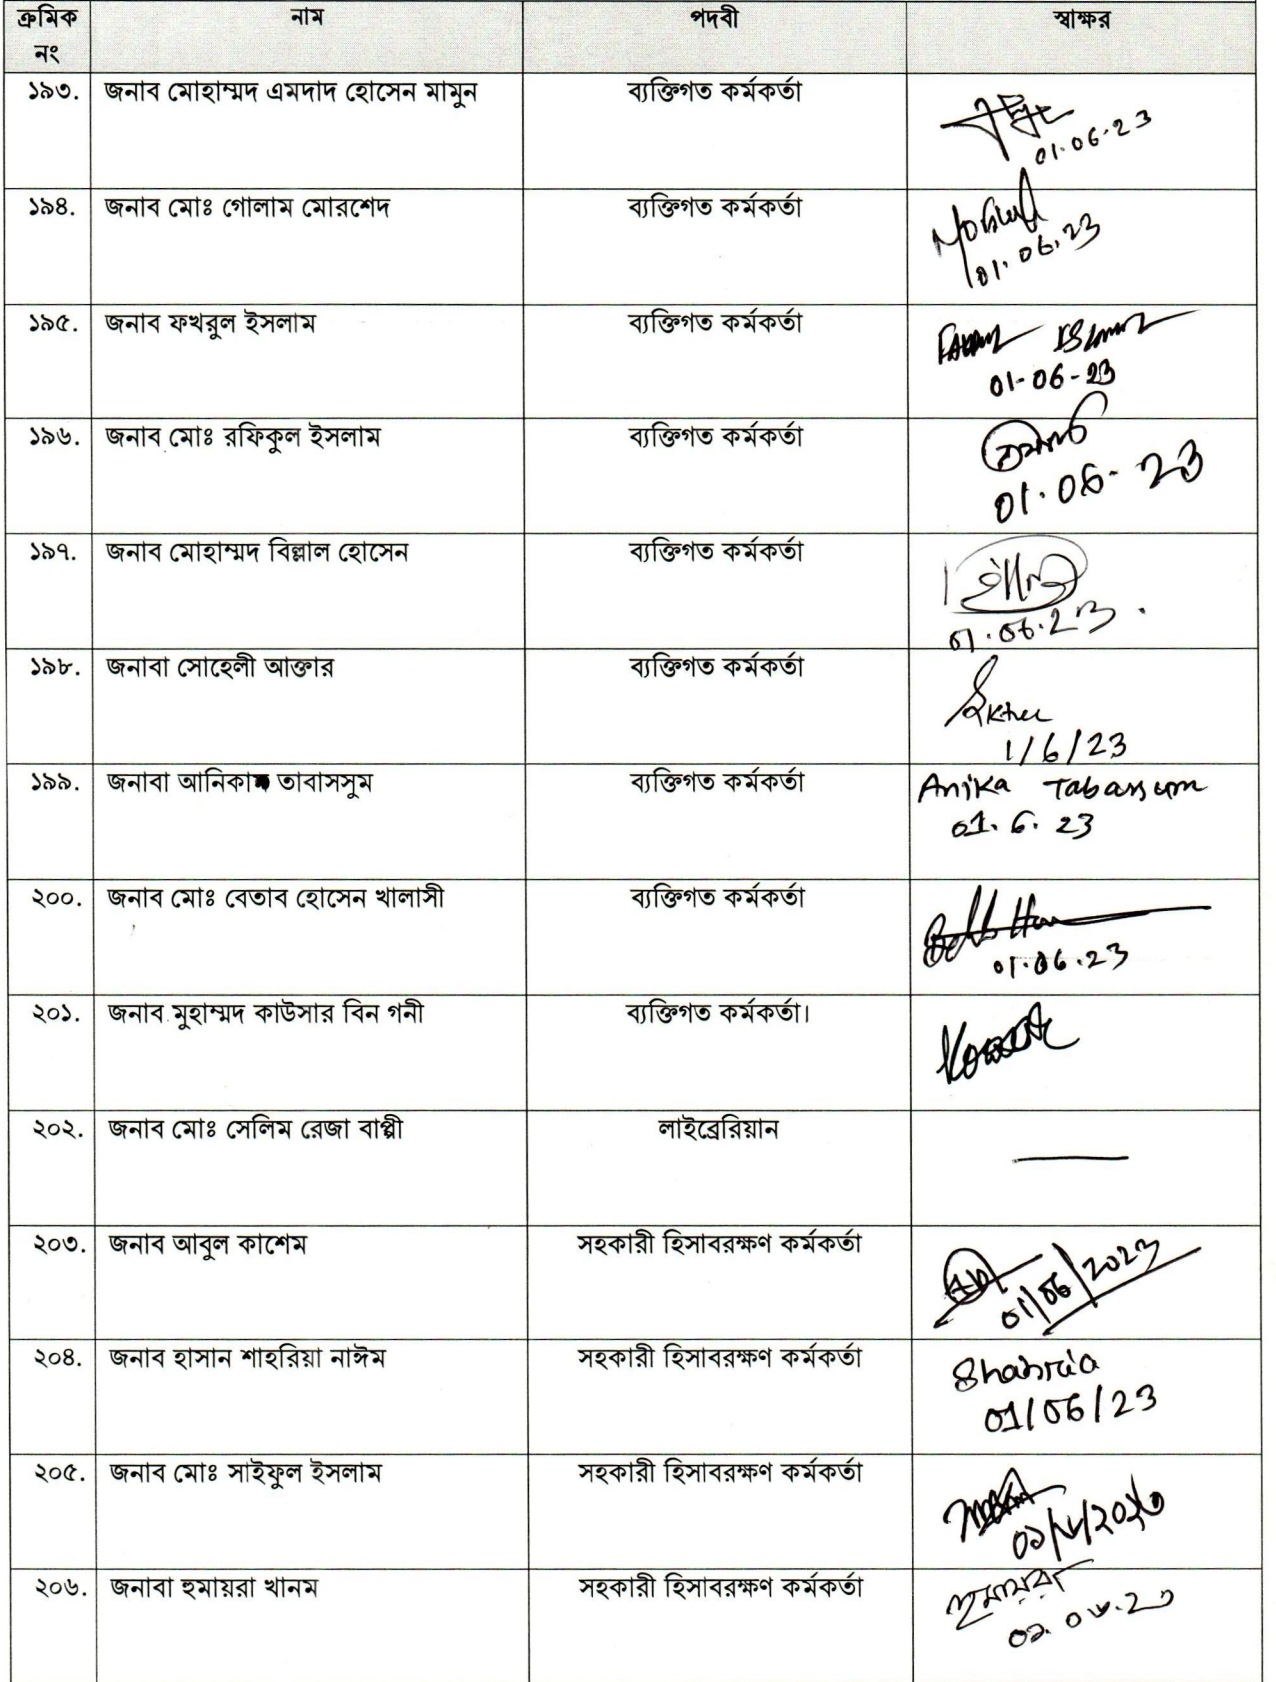 ক্রমিক নং নাম পদবী স্বাক্ষর
১৯৩. জনাব মোহাম্মদ এমদাদ হোসেন মামুন ব্যক্তিগত কর্মকর্তা
01.06.23
১৯৪. জনাব মোঃ গোলাম মোরশেদ ব্যক্তিগত কর্মকর্তা
01.06.23
১৯৫. জনাব ফখরুল ইসলাম ব্যক্তিগত কর্মকর্তা
01-06-23
১৯৬. জনাব মোঃ রফিকুল ইসলাম ব্যক্তিগত কর্মকর্তা
01.06-23
১৯৭. জনাব মোহাম্মদ বিল্লাল হোসেন ব্যক্তিগত কর্মকর্তা
01.06.23.
১৯৮. জনাবা সোহেলী আক্তার ব্যক্তিগত কর্মকর্তা
1/6/23
১৯৯. জনাবা আনিকা তাবাসসুম ব্যক্তিগত কর্মকর্তা Anika Tabassum
01.6.23
২০০. জনাব মোঃ বেতাব হোসেন খালাসী ব্যক্তিগত কর্মকর্তা
01.06.23
২০১. জনাব মুহাম্মদ কাউসার বিন গনী ব্যক্তিগত কর্মকর্তা।
২০২. জনাব মোঃ সেলিম রেজা বাপ্পী লাইব্রেরিয়ান
২০৩. জনাব আবুল কাশেম সহকারী হিসাবরক্ষণ কর্মকর্তা
01/06/2023
২০৪. জনাব হাসান শাহরিয়া নাঈম সহকারী হিসাবরক্ষণ কর্মকর্তা Shahria
01/06/23
২০৫. জনাব মোঃ সাইফুল ইসলাম সহকারী হিসাবরক্ষণ কর্মকর্তা
০১/৬/২০২৩
২০৬. জনাবা হুমায়রা খানম সহকারী হিসাবরক্ষণ কর্মকর্তা হুমায়রা
০১.০৬.২৩